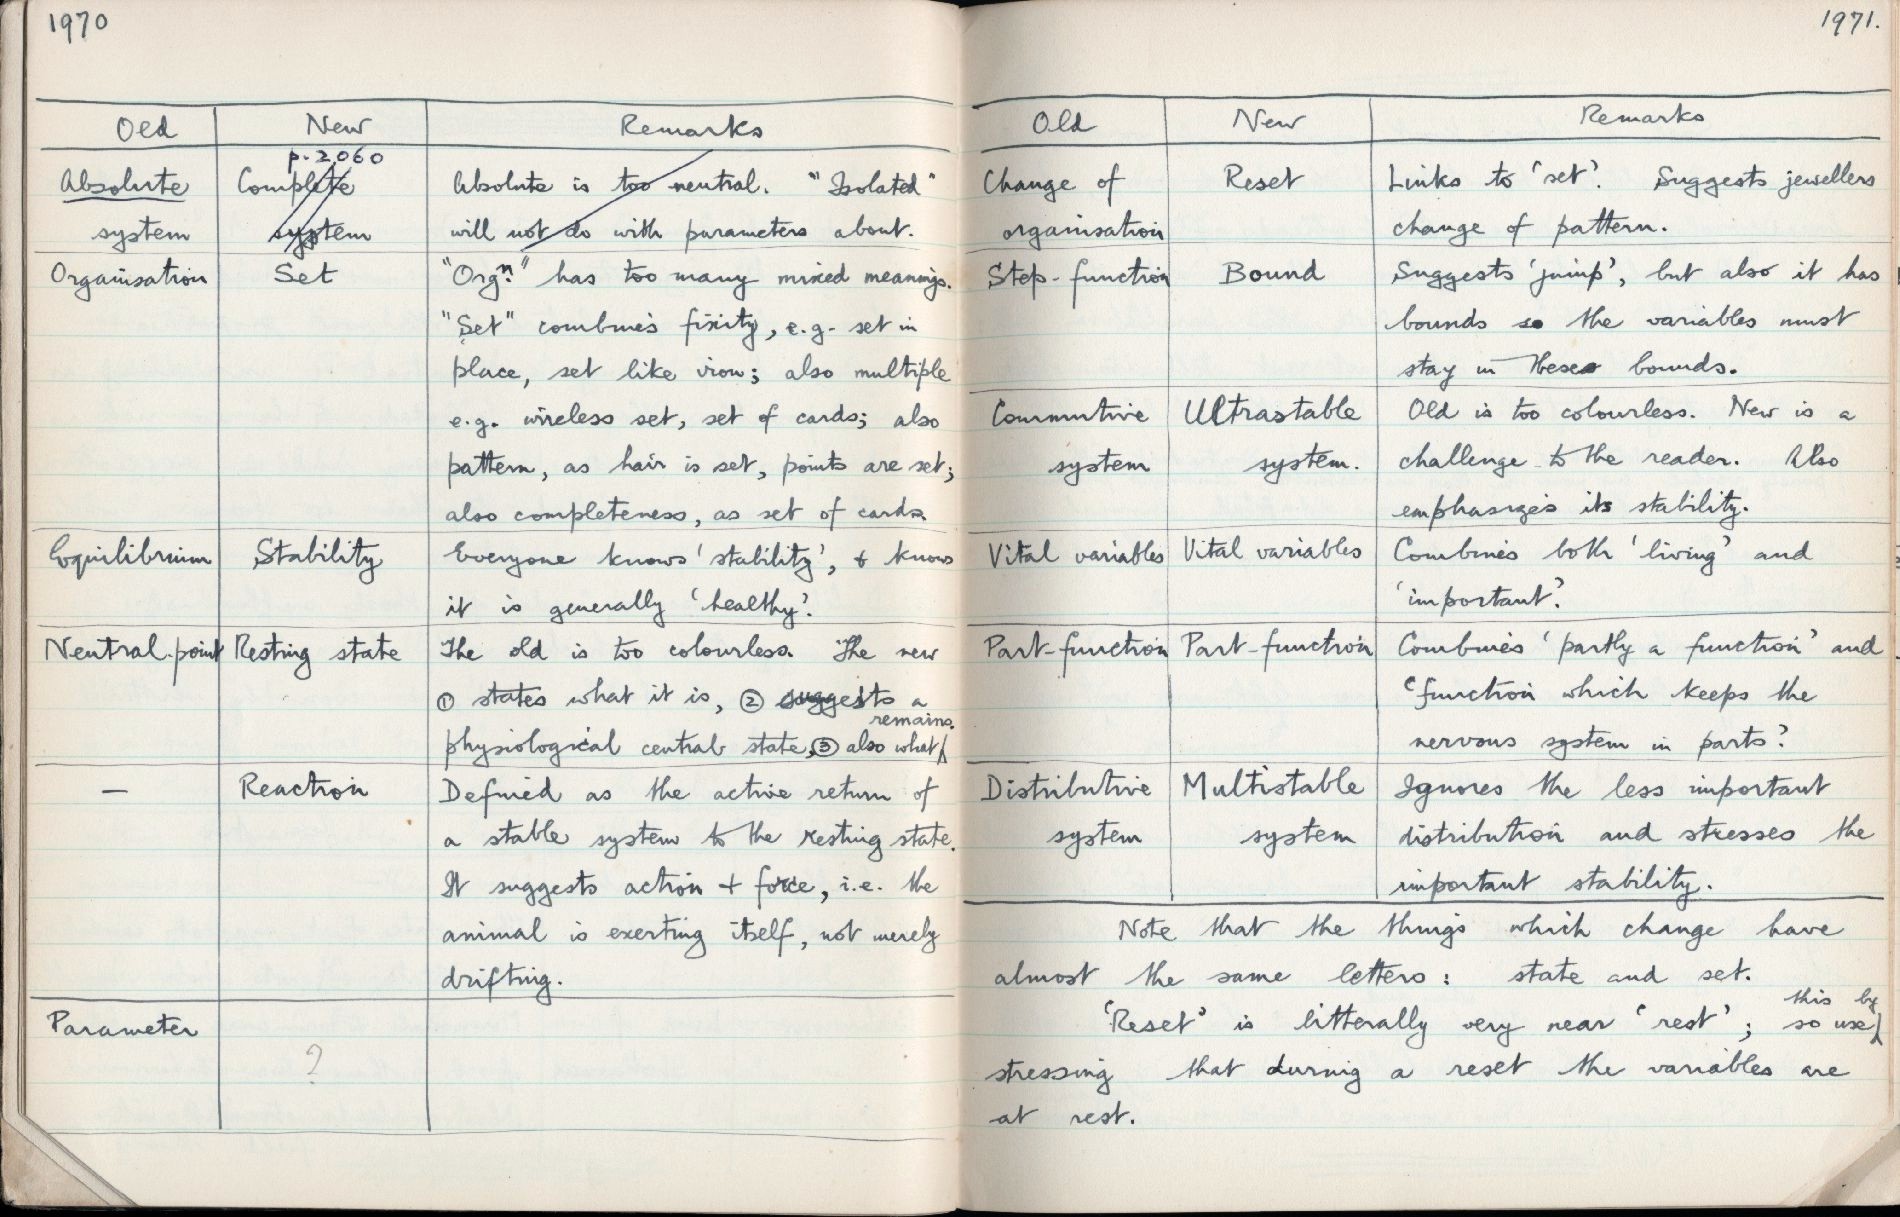 1970
Old New Remarks
p. 2060
Absolute Complete Absolute is too neutral. "Isolated"
system system will not do with parameters about.
Organisation Set "Orgn." has too many mixed meanings.
"Set" combines fixity, e.g. set in
place, set like iron; also multiple
e.g. wireless set, set of cards; also
pattern, as hair is set, points are set;
also completeness, as set of cards.
Equilibrium Stability Everyone knows 'stability', & knows
it is generally 'healthy'.
Neutral-point Resting state The old is too colourless. The new
① states what it is, ② suggests a
remains.
physiological central state, ③ also what
— Reaction Defined as the active return of
a stable system to the resting state.
It suggests action + force, i.e. the
animal is exerting itself, not merely
drifting.
Parameter
?
1971.
Old New Remarks
Change of Reset Links to 'set'. Suggests jewellers
organisation change of pattern.
Step-function Bound Suggests 'jump', but also it has
bounds so the variables must
stay in these bounds.
Commutive Ultrastable Old is too colourless. New is a
system system. challenge to the reader. Also
emphasizes its stability.
Vital variables Vital variables Combines both 'living' and
'important'.
Part-function Part-function Combines 'partly a function' and
'function which keeps the
nervous system in parts'.
Distributive Multistable Ignores the less important
system system distribution and stresses the
important stability.
Note that the things which change have
almost the same letters: state and set.
this by
'Reset' is litterally very near 'rest'; so use
stressing that during a reset the variables are
at rest.